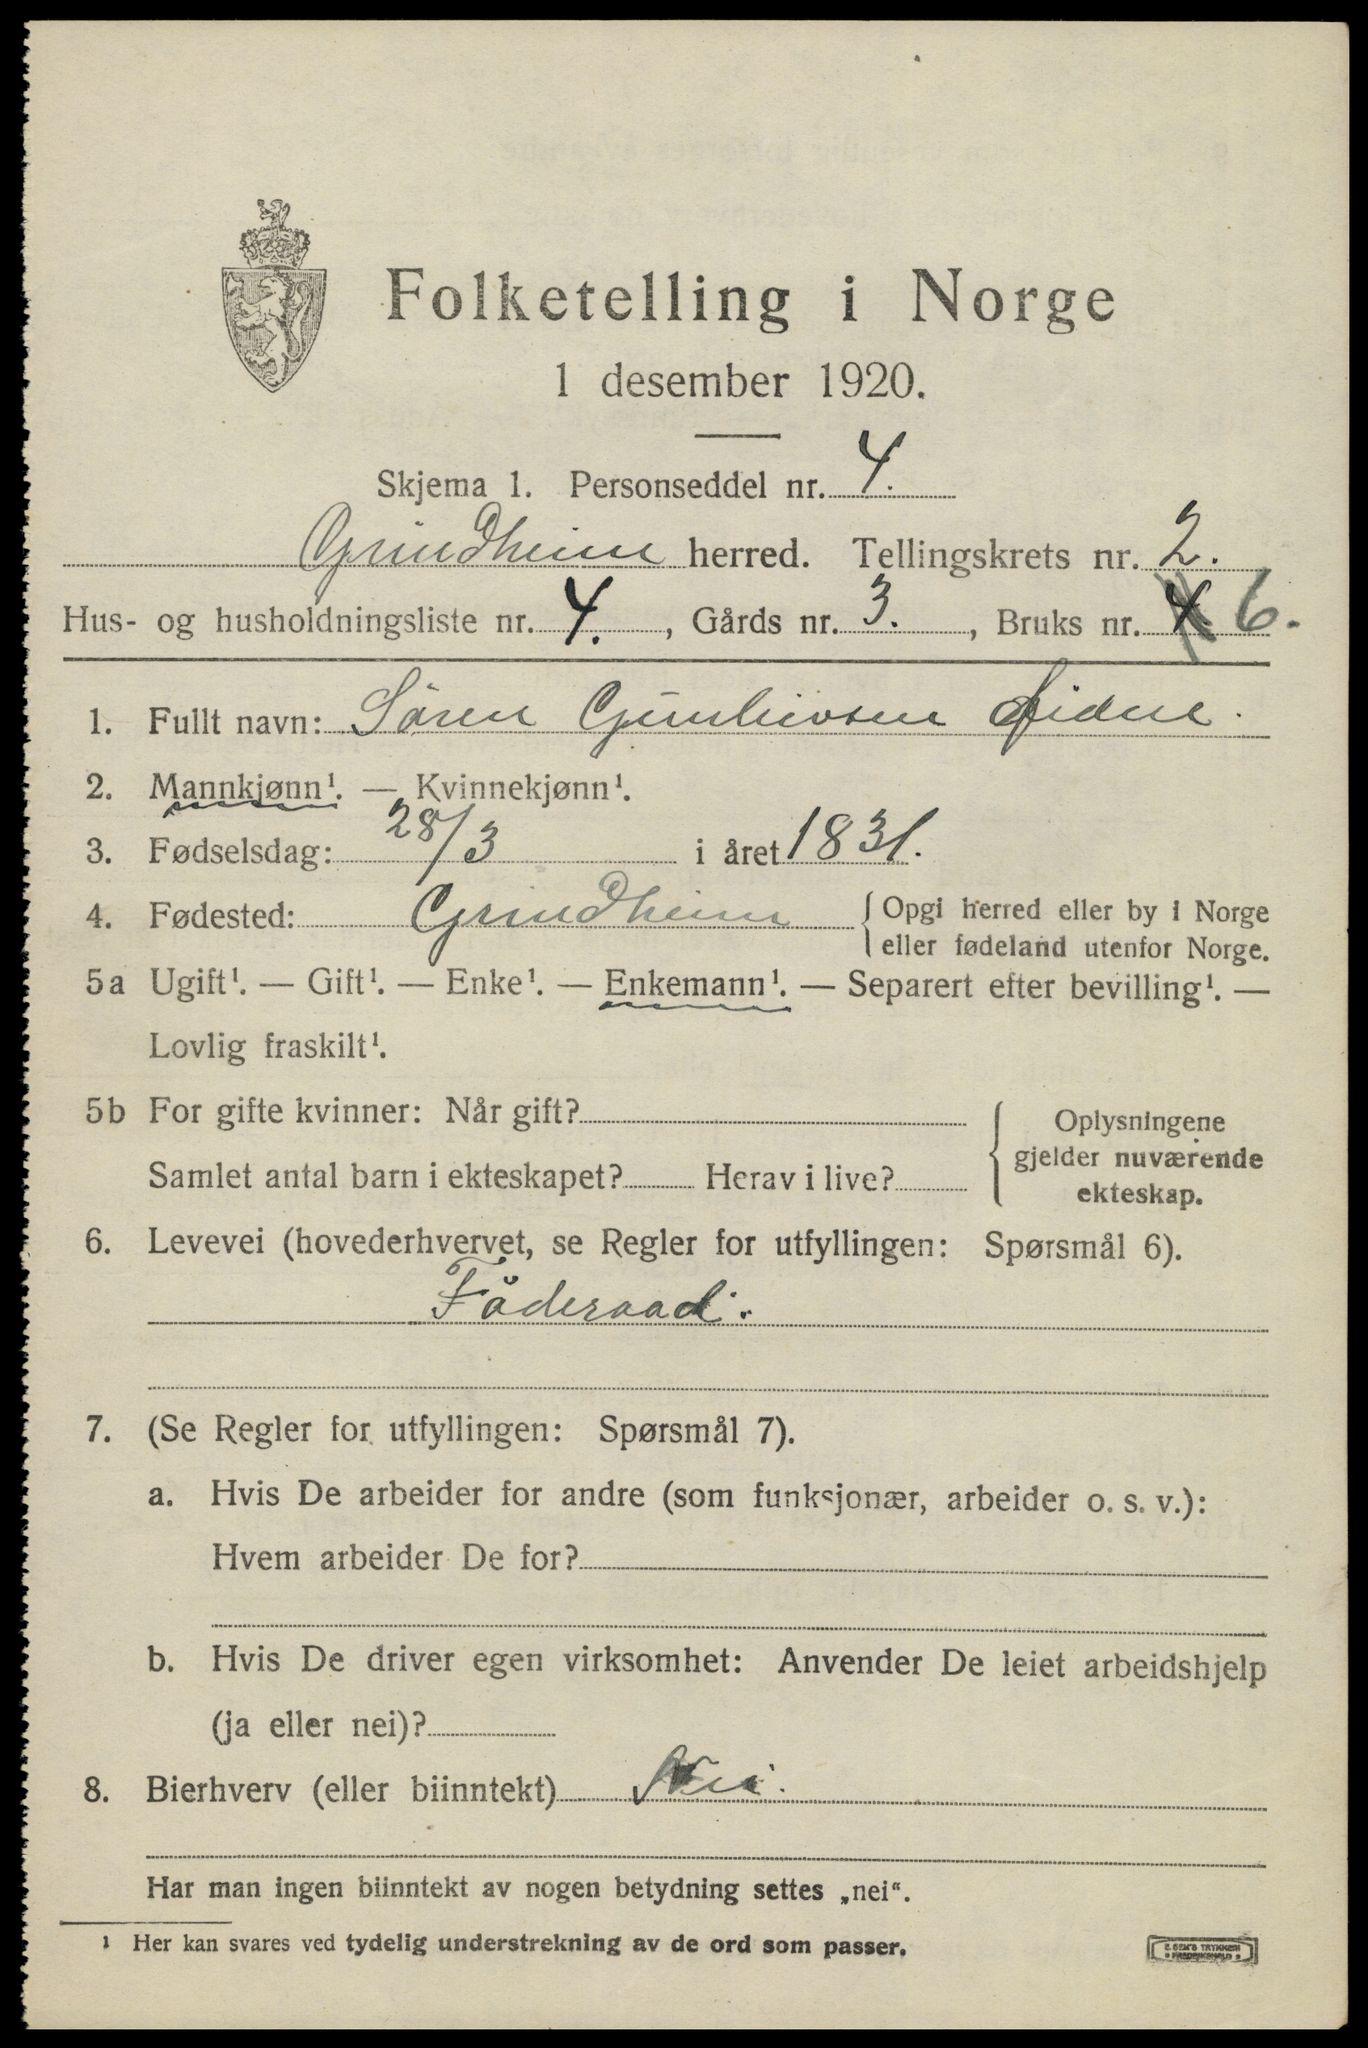 Folketelling i Norge
1 desember 1920.
Skjema 1. Personseddel nr. 4.
Grindheim herred. Tellingskrets nr. 2.
Hus- og husholdningsliste nr. 4., Gårds nr. 3., Bruks nr. 4 6.
1. Fullt navn: Sören Gunlievsen
2. Mannkjønn¹. — Kvinnekjønn¹.
3. Fødselsdag: 28/3 i året 1831.
4. Fødested: Grindheim { Opgi herred eller by i Norge
eller fødeland utenfor Norge.
5a Ugift¹. — Gift¹. — Enke¹. — Enkemann¹. — Separert efter bevilling¹. —
Lovlig fraskilt¹.
5b For gifte kvinner: Når gift? { Oplysningene
gjelder nuværende
Samlet antal barn i ekteskapet? Herav i live? ekteskap.
6. Levevei (hovederhvervet, se Regler for utfyllingen: Spørsmål 6).
Föderaad.
7. (Se Regler for utfyllingen: Spørsmål 7).
a. Hvis De arbeider for andre (som funksjonær, arbeider o. s. v.):
Hvem arbeider De for?
b. Hvis De driver egen virksomhet: Anvender De leiet arbeidshjelp
(ja eller nei)?
8. Bierhverv (eller biinntekt) Nei.
Har man ingen biinntekt av nogen betydning settes „nei".
¹ Her kan svares ved tydelig understrekning av de ord som passer.